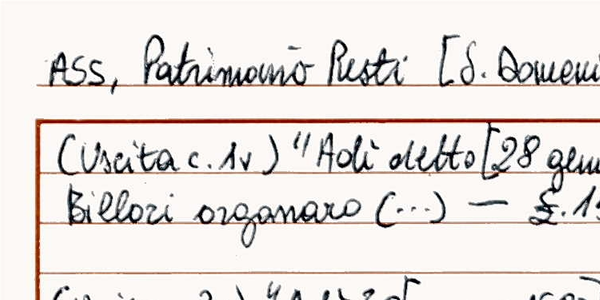 ASS, Patrimonio Resti [S. Domeni
(Uscita c. 1v) "Adì detto [28 genn
Billori organaro (...) — £. 15